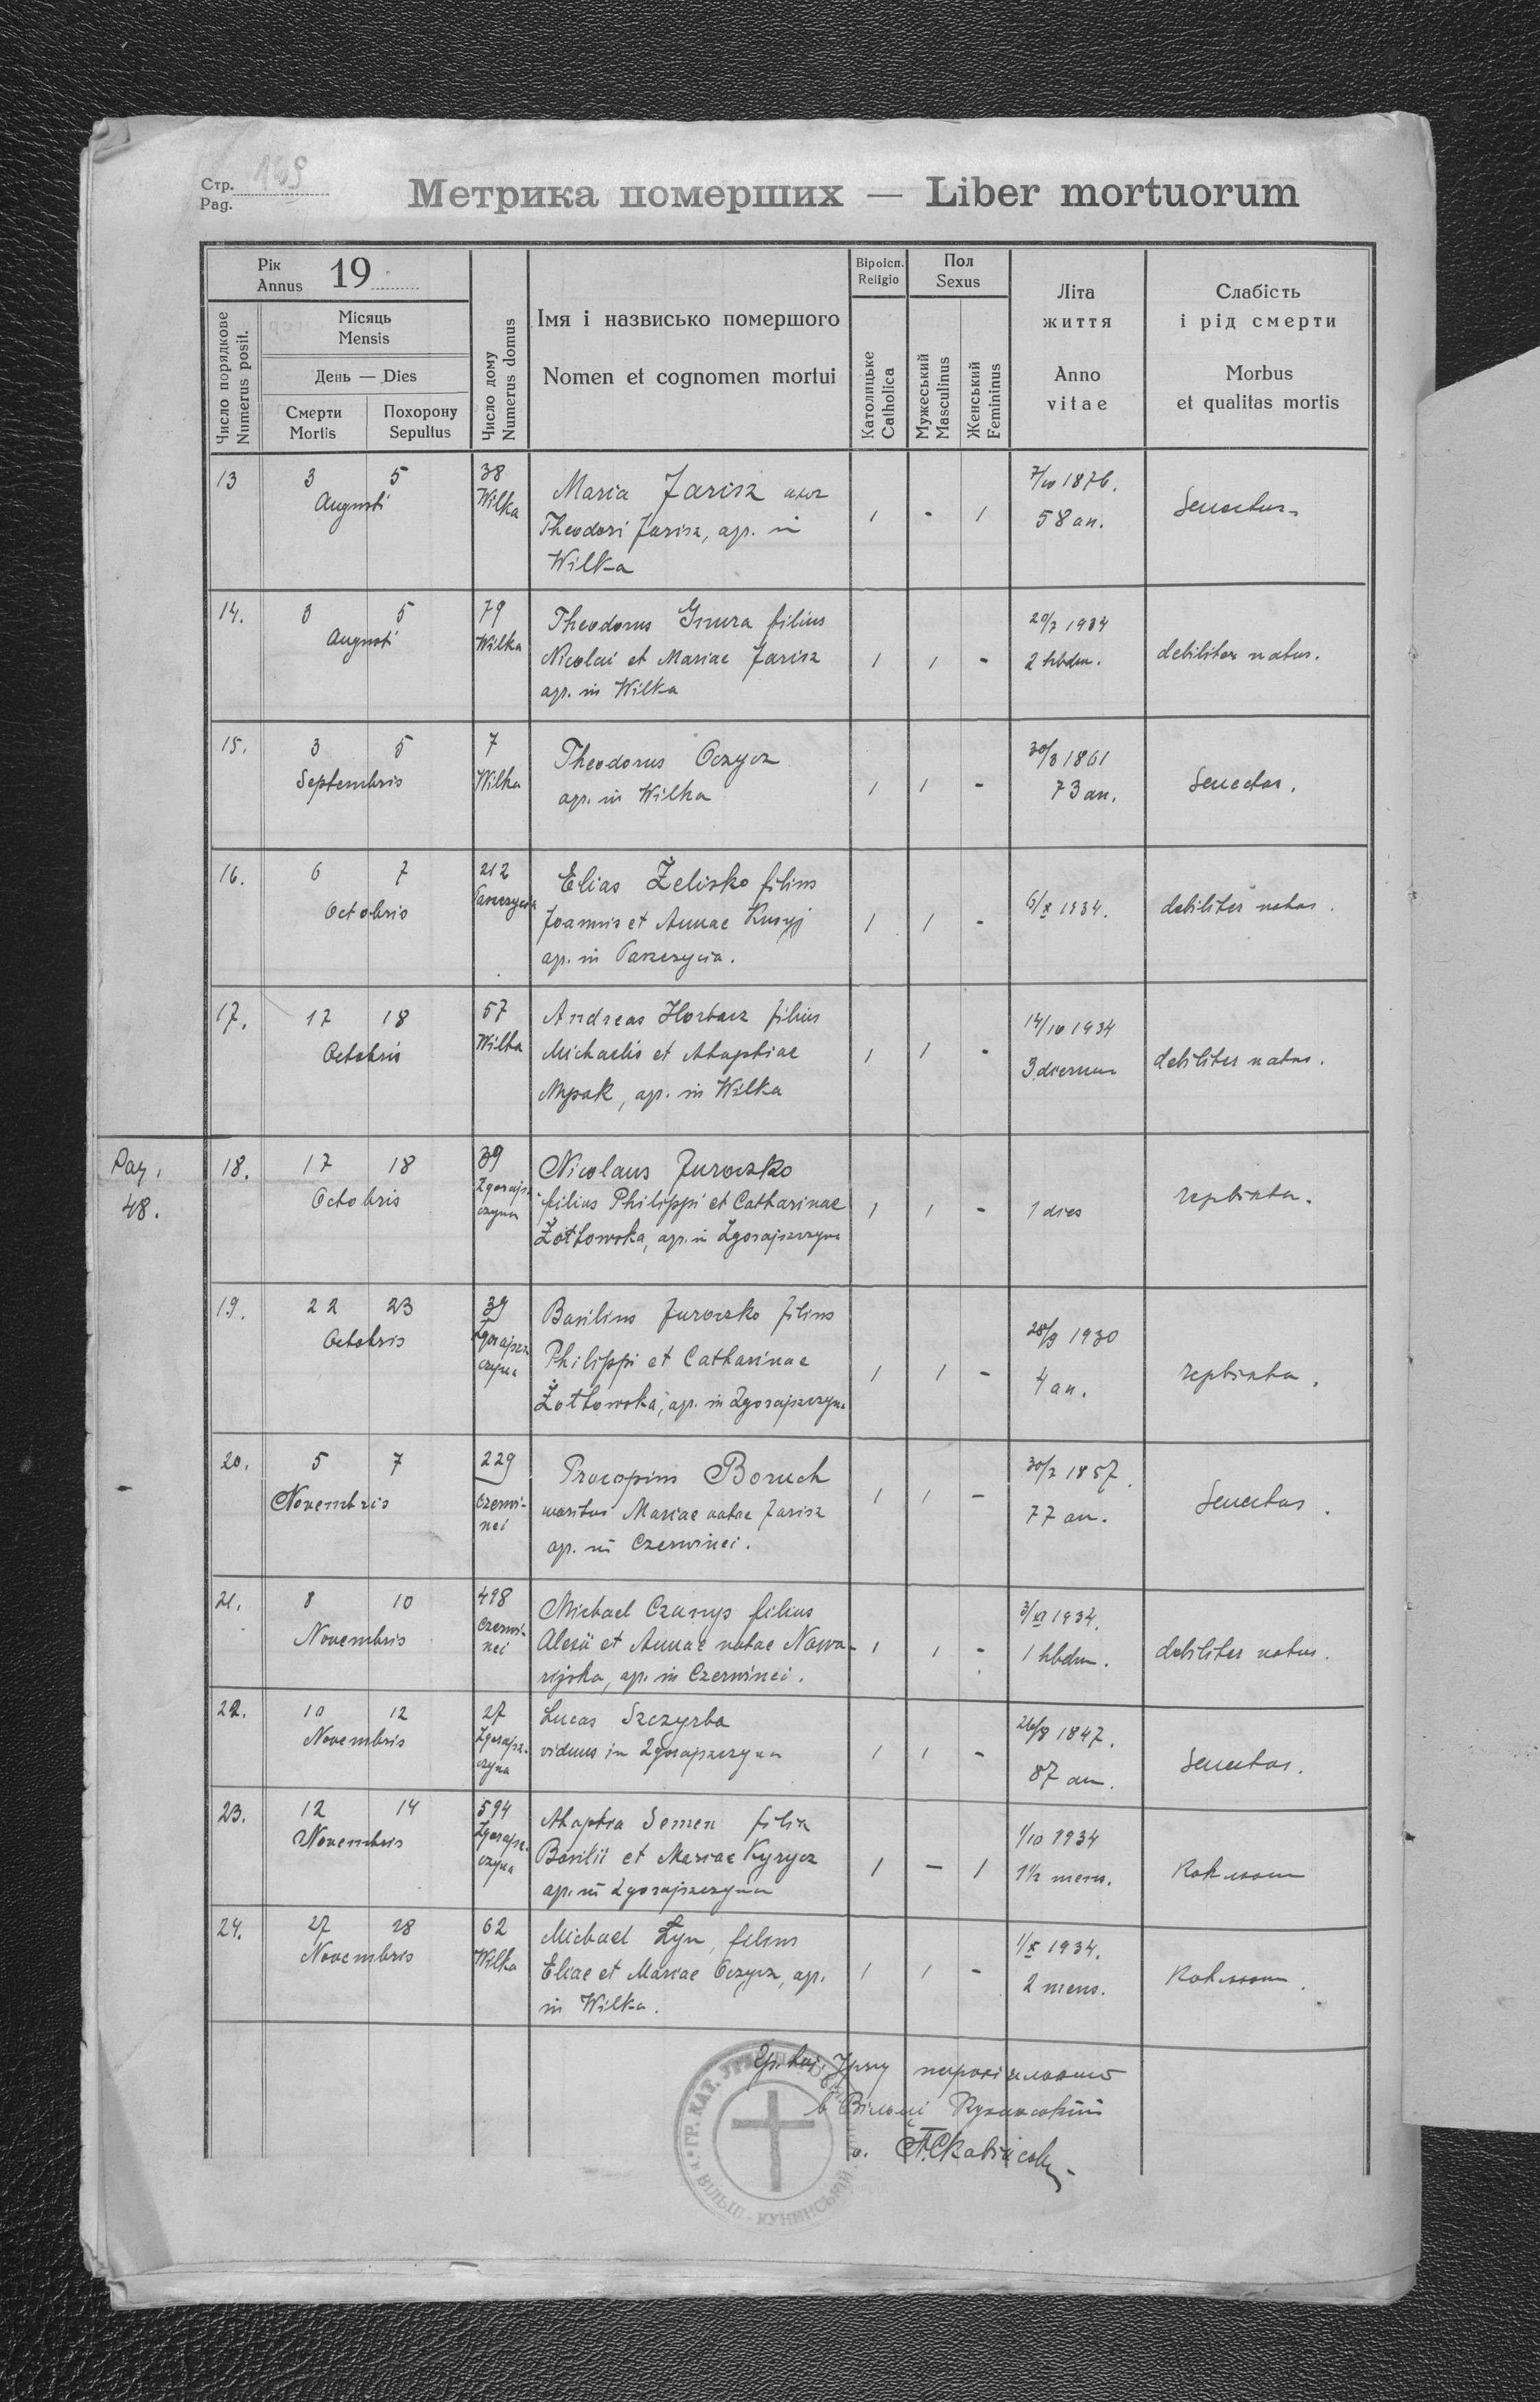 Стр. 169
Pag.
Метрика померших — Liber mortuorum
Рік
Annus 19
Число порядкове
Numerus posit.
Місяць
Mensis
День — Dies
Смерти
Mortis
Похорону
Sepultus
Число дому
Numerus domus
Імя і назвисько помершого
Nomen et cognomen mortui
Віроісп.
Religio
Католицьке
Catholica
Пол
Sexus
Мужеський
Masculinus
Женський
Femininus
Літа
життя
Anno
vitae
Слабість
і рід смерти
Morbus
et qualitas mortis
13 3 5 38
Augusti Wilka
Maria Jarisz uxor
Theodori Jarisz, ap. in
Wilka
1 - 1
7/10 1876.
58 an.
Senectus
14. 3 5 79
Augusti Wilka
Theodorus Gmura filius
Nicolai et Mariae Jarisz
ap. in Wilka
1 1 -
20/7 1934
2 hbdm.
debiliter natus.
15. 3 5 7
Septembris Wilka
Theodorus Oczycz
ap. in Wilka
1 1 -
30/3 1861
73 an.
Senectus.
16. 6 7 212
Octobris
Elias Želisko filius
Joannis et Annae
ap. in
1 1 -
6/X 1934.
debiliter natus.
17. 17 18 57
Octobris Wilka
Andreas Horbacz filius
Michaelis et Ahaphiae
ap. in Wilka
1 1 -
14/10 1934
3 dierum
debiliter natus.
Pag.
48.
18. 17 18 39
Octobris Zgorajsz-
czyna
Nicolaus Juroczko
filius Philippi et Catharinae
Żołtowska, ap. in Zgorajszczyna
1 1 -
1 dies
19. 22 23 39
Octobris Zgorajsz
czyna
Basilius Juroczko filius
Philippi et Catharinae
Żołtowska, ap. in Zgorajszczyna
1 1 -
28/9 1930
4 an.
20. 5 7 229
Novembris Czerwi-
nei
Procopius Boruch
maritus Mariae natae Jarisz
ap. in Czerwinei.
1 1 -
30/7 1857.
77 an.
Senectus.
21. 8 10 498
Novembris Czerwi-
nei
Michael filius
Alexii et Annae natae Nawa-
ap. in Czerwinei.
1 1 -
3/XI 1934.
1 hbdm.
debiliter natus.
22. 10 12 27
Novembris Zgorajsz-
czyna
Lucas Szczyrba
viduus in Zgorajszczyna
1 1 -
26/8 1847.
87 an.
Senectus.
23. 12 14 594
Novembris Zgorajsz-
czyna
Ahaphia Semen filia
Basilii et Mariae Kyrycz
ap. in Zgorajszczyna
1 - 1
1/10 1934
1½ mens.
24. 27 28 62
Novembris Wilka
Michael Łyn, filius
Eliae et Mariae Oczycz, ap.
in Wilka.
1 1 -
1/X 1934.
2 mens.